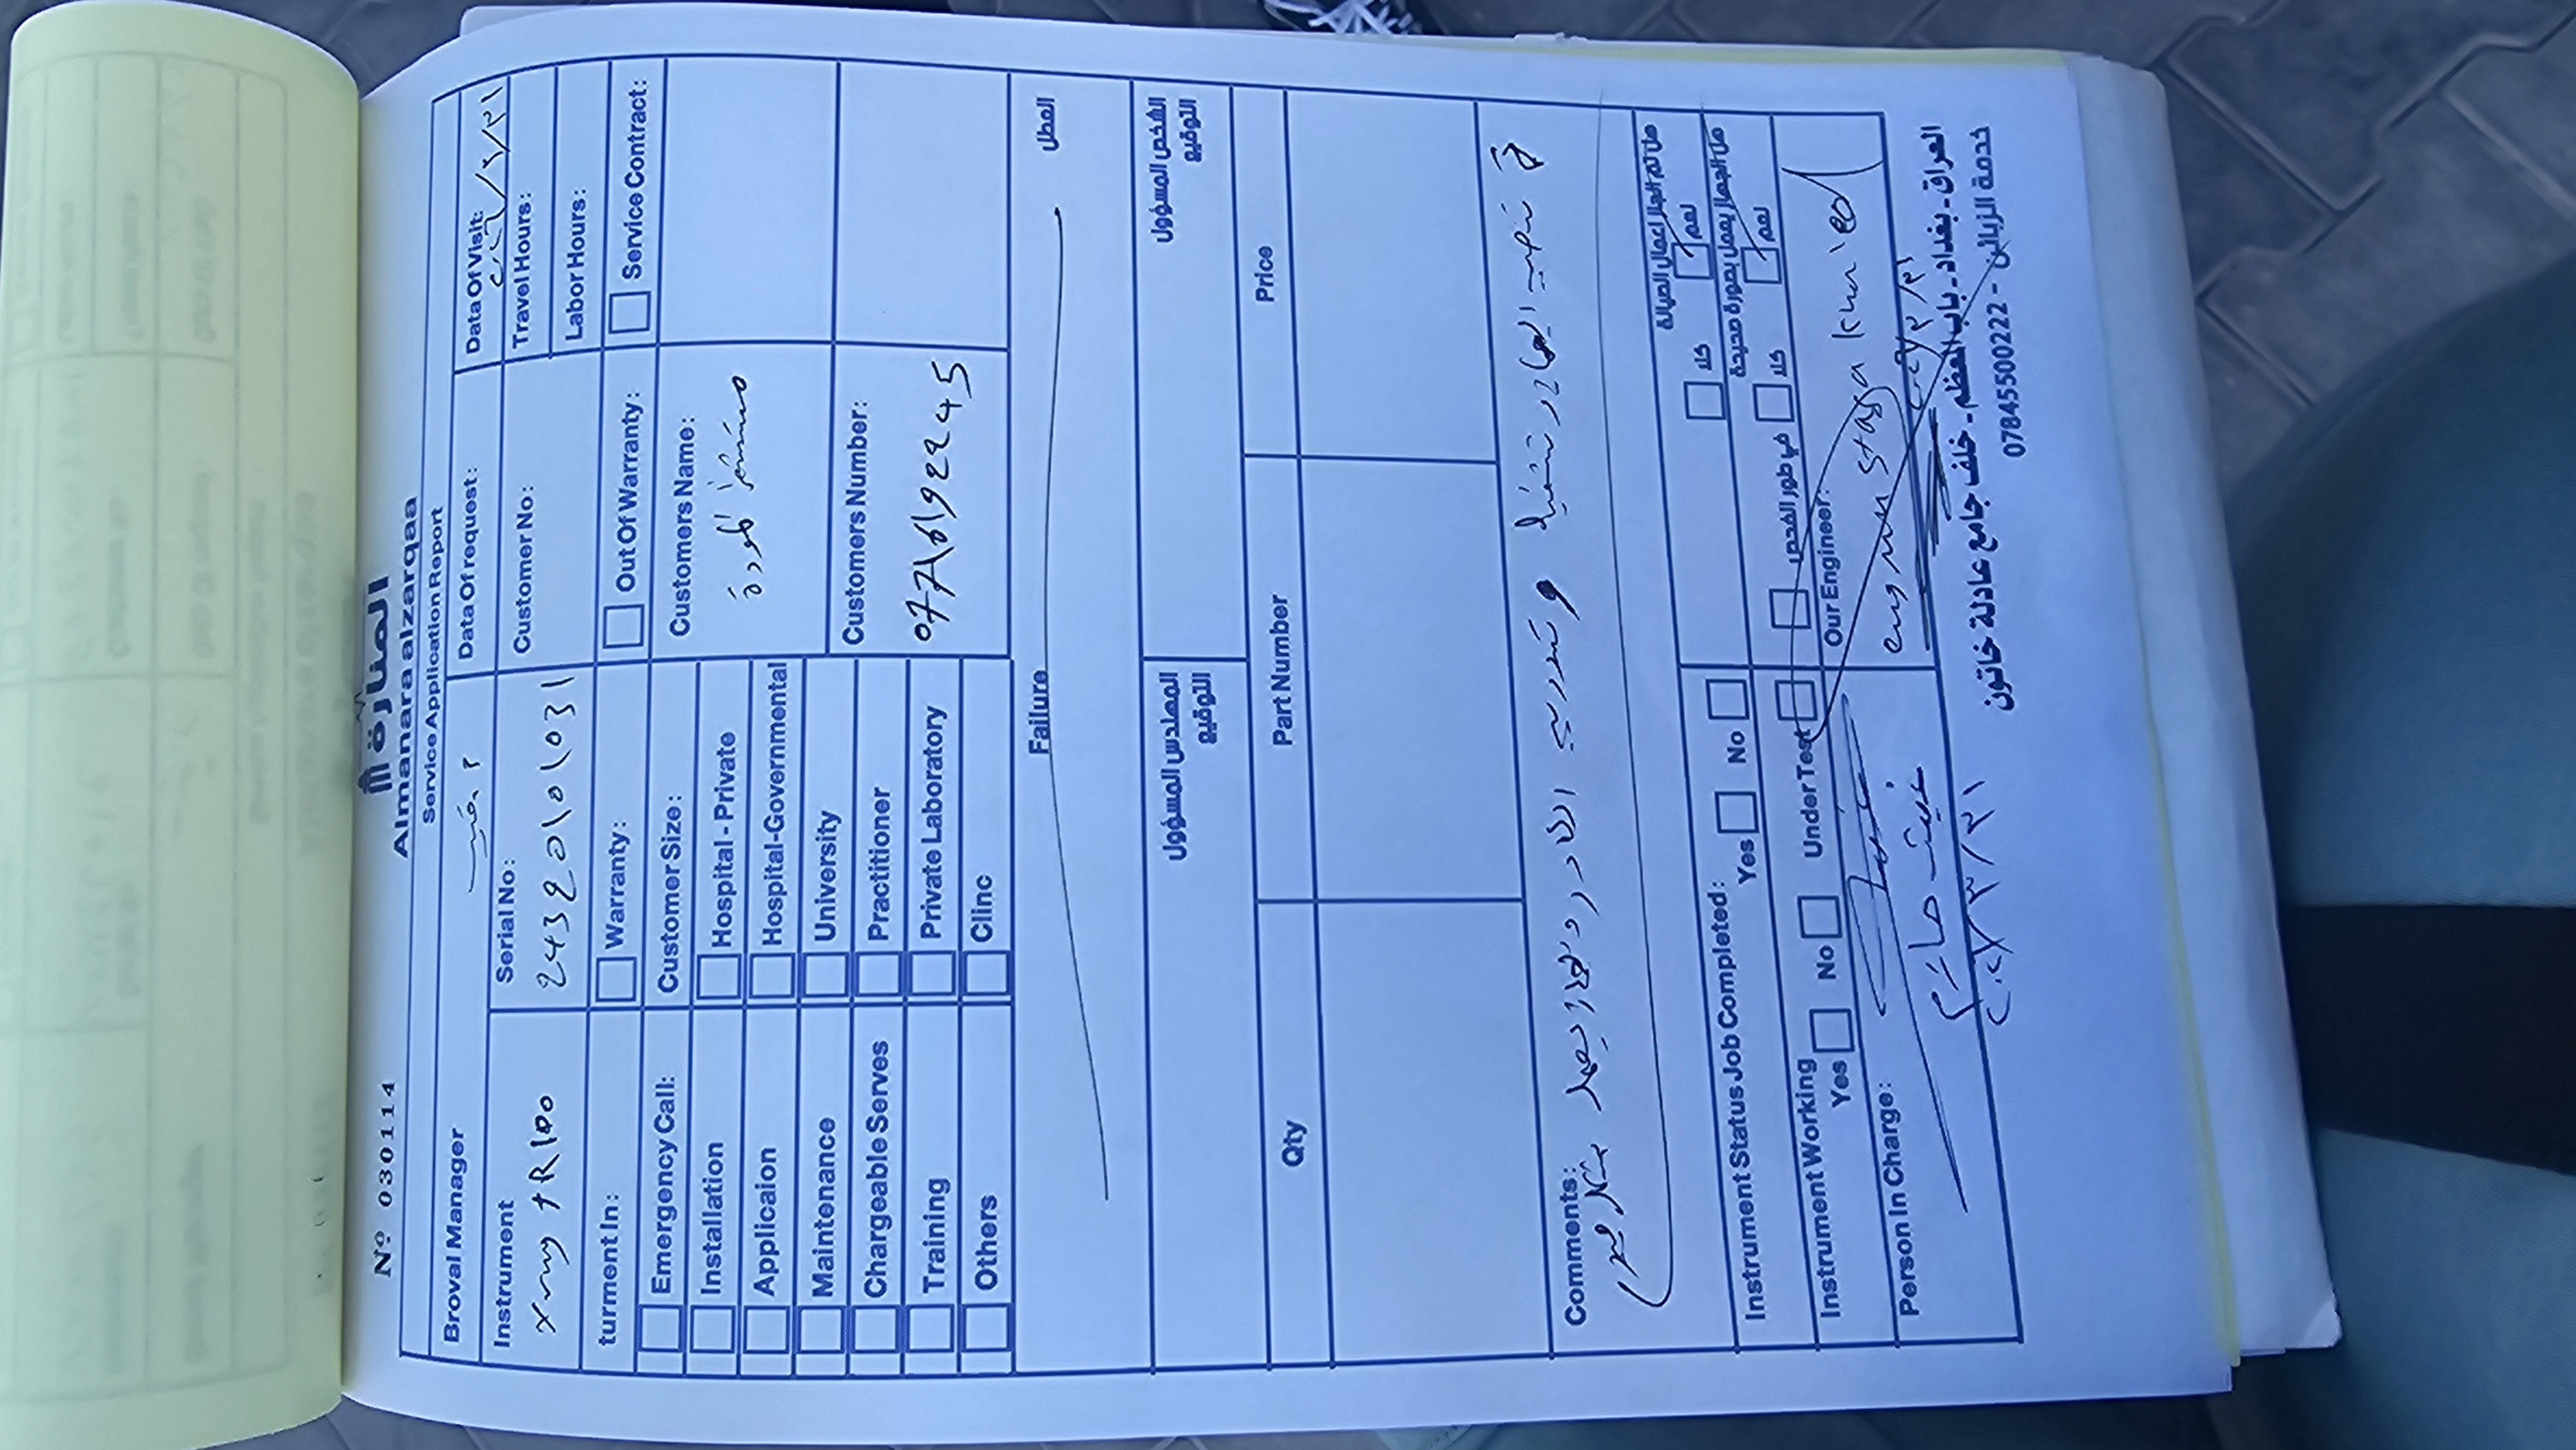 Nº 030114
المنارة
Almanara alzarqaa
Service Application Report
Broval Manager
Data Of request:
Data Of Visit:
Instrument
Serial No:
Customer No:
Travel Hours:
Labor Hours:
24320101031
turment In:
Warranty:
Out Of Warranty:
Service Contract:
Emergency Call:
Customer Size:
Customers Name:
Installation
Hospital - Private
Applicaion
Hospital-Governmental
Maintenance
University
Customers Number:
Chargeable Serves
Practitioner
Training
Private Laboratory
Others
Clinc
Failure
العطل
المهندس المسؤول
التوقيع
الشخص المسؤول
التوقيع
Qty
Part Number
Price
Comments:
تم نصب الجهاز وتشغيله وتدريب الكادر والجهاز يعمل بشكل جيد
Instrument Status Job Completed:
Yes
No
هل تم انجاز اعمال الصيانة
كلا
نعم
Instrument Working
Yes
No
Under Test
في طور الفحص
هل الجهاز يعمل بصورة صحيحة
كلا
نعم
Person In Charge:
Our Engineer:
العراق - بغداد - باب المعظم - خلف جامع عادلة خاتون
خدمة الزبائن - 07845500222